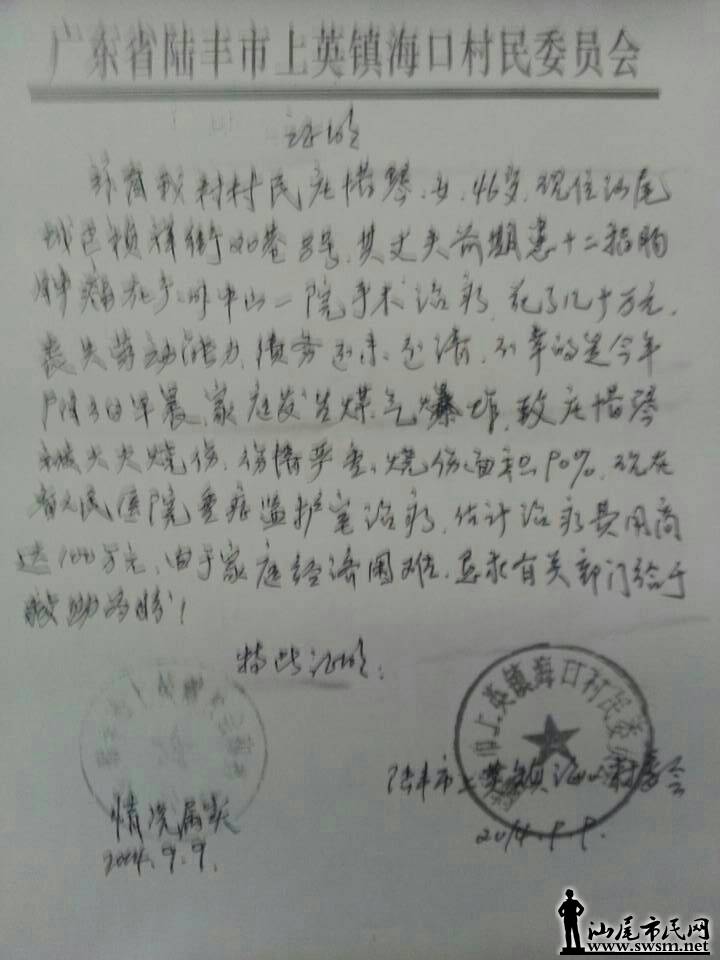 广东省陆丰市上英镇海口村民委员会
证明
兹有我村村民庄惜琴,女,46岁,现住汕尾
城区祯祥街20巷8号,其丈夫前期患十二指肠
肿瘤在广州中山一院手术治疗,花了几十万元,
丧失劳动能力,债务还未还清,不幸的是今年
日早晨,家庭发生煤气爆炸,致庄惜琴
被大火烧伤,伤情严重,烧伤面积90%,现在
省人民医院重症监护室治疗,估计治疗费用高
达100万元,由于家庭经济困难,恳求有关部门给于
救助为盼!
特此证明:
上英镇海口村民委
陆丰市上英镇海口村委会
2014.9.9.
情况属实
2014.9.9.
汕尾市民网
www.swsm.net